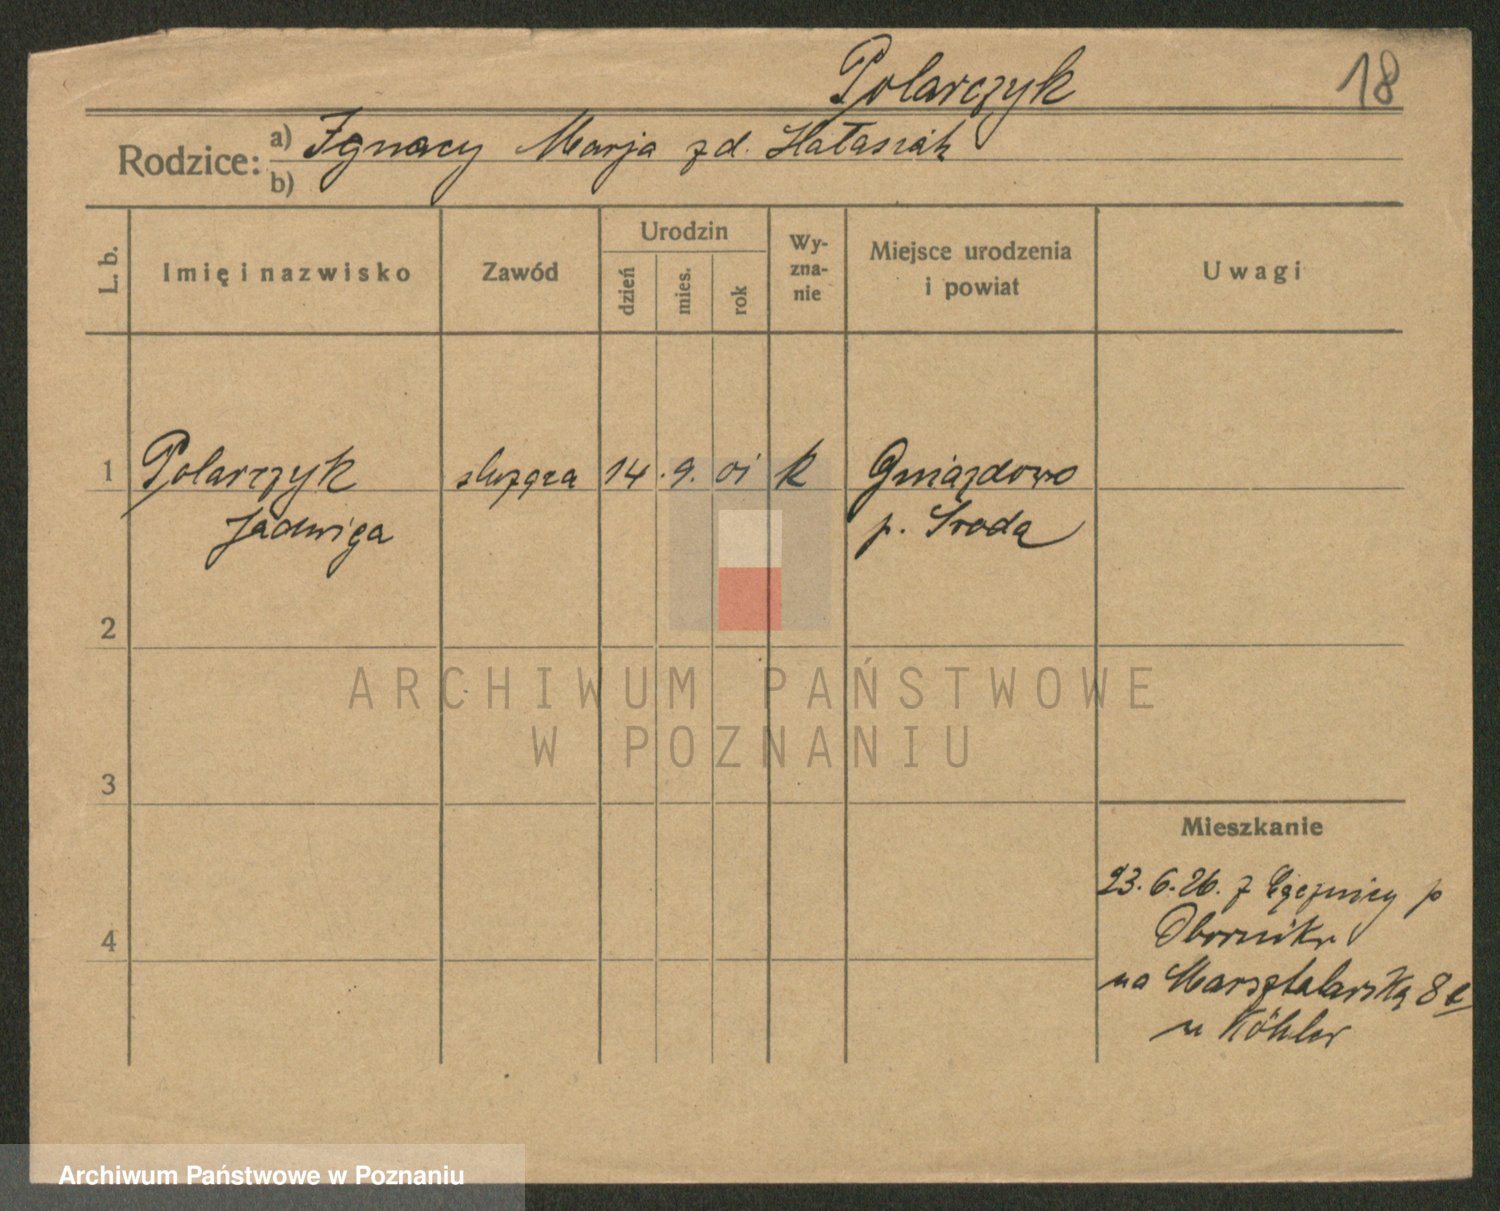 Polarczyk
18
Rodzice: a) Ignacy Marja zd. Hałasiak
b)
L. b.
Imię i nazwisko
Zawód
Urodzin
dzień
mies.
rok
Wy-
zna-
nie
Miejsce urodzenia
i powiat
Uwagi
1 Polarczyk służąca 14. 9. 01 k Gniazdowo
Jadwiga p. Środa
2
3
4
Mieszkanie
23.6.26. z p
Obornik
na Marsztalarską 8e
u Köhler
ARCHIWUM PAŃSTWOWE
W POZNANIU
Archiwum Państwowe w Poznaniu